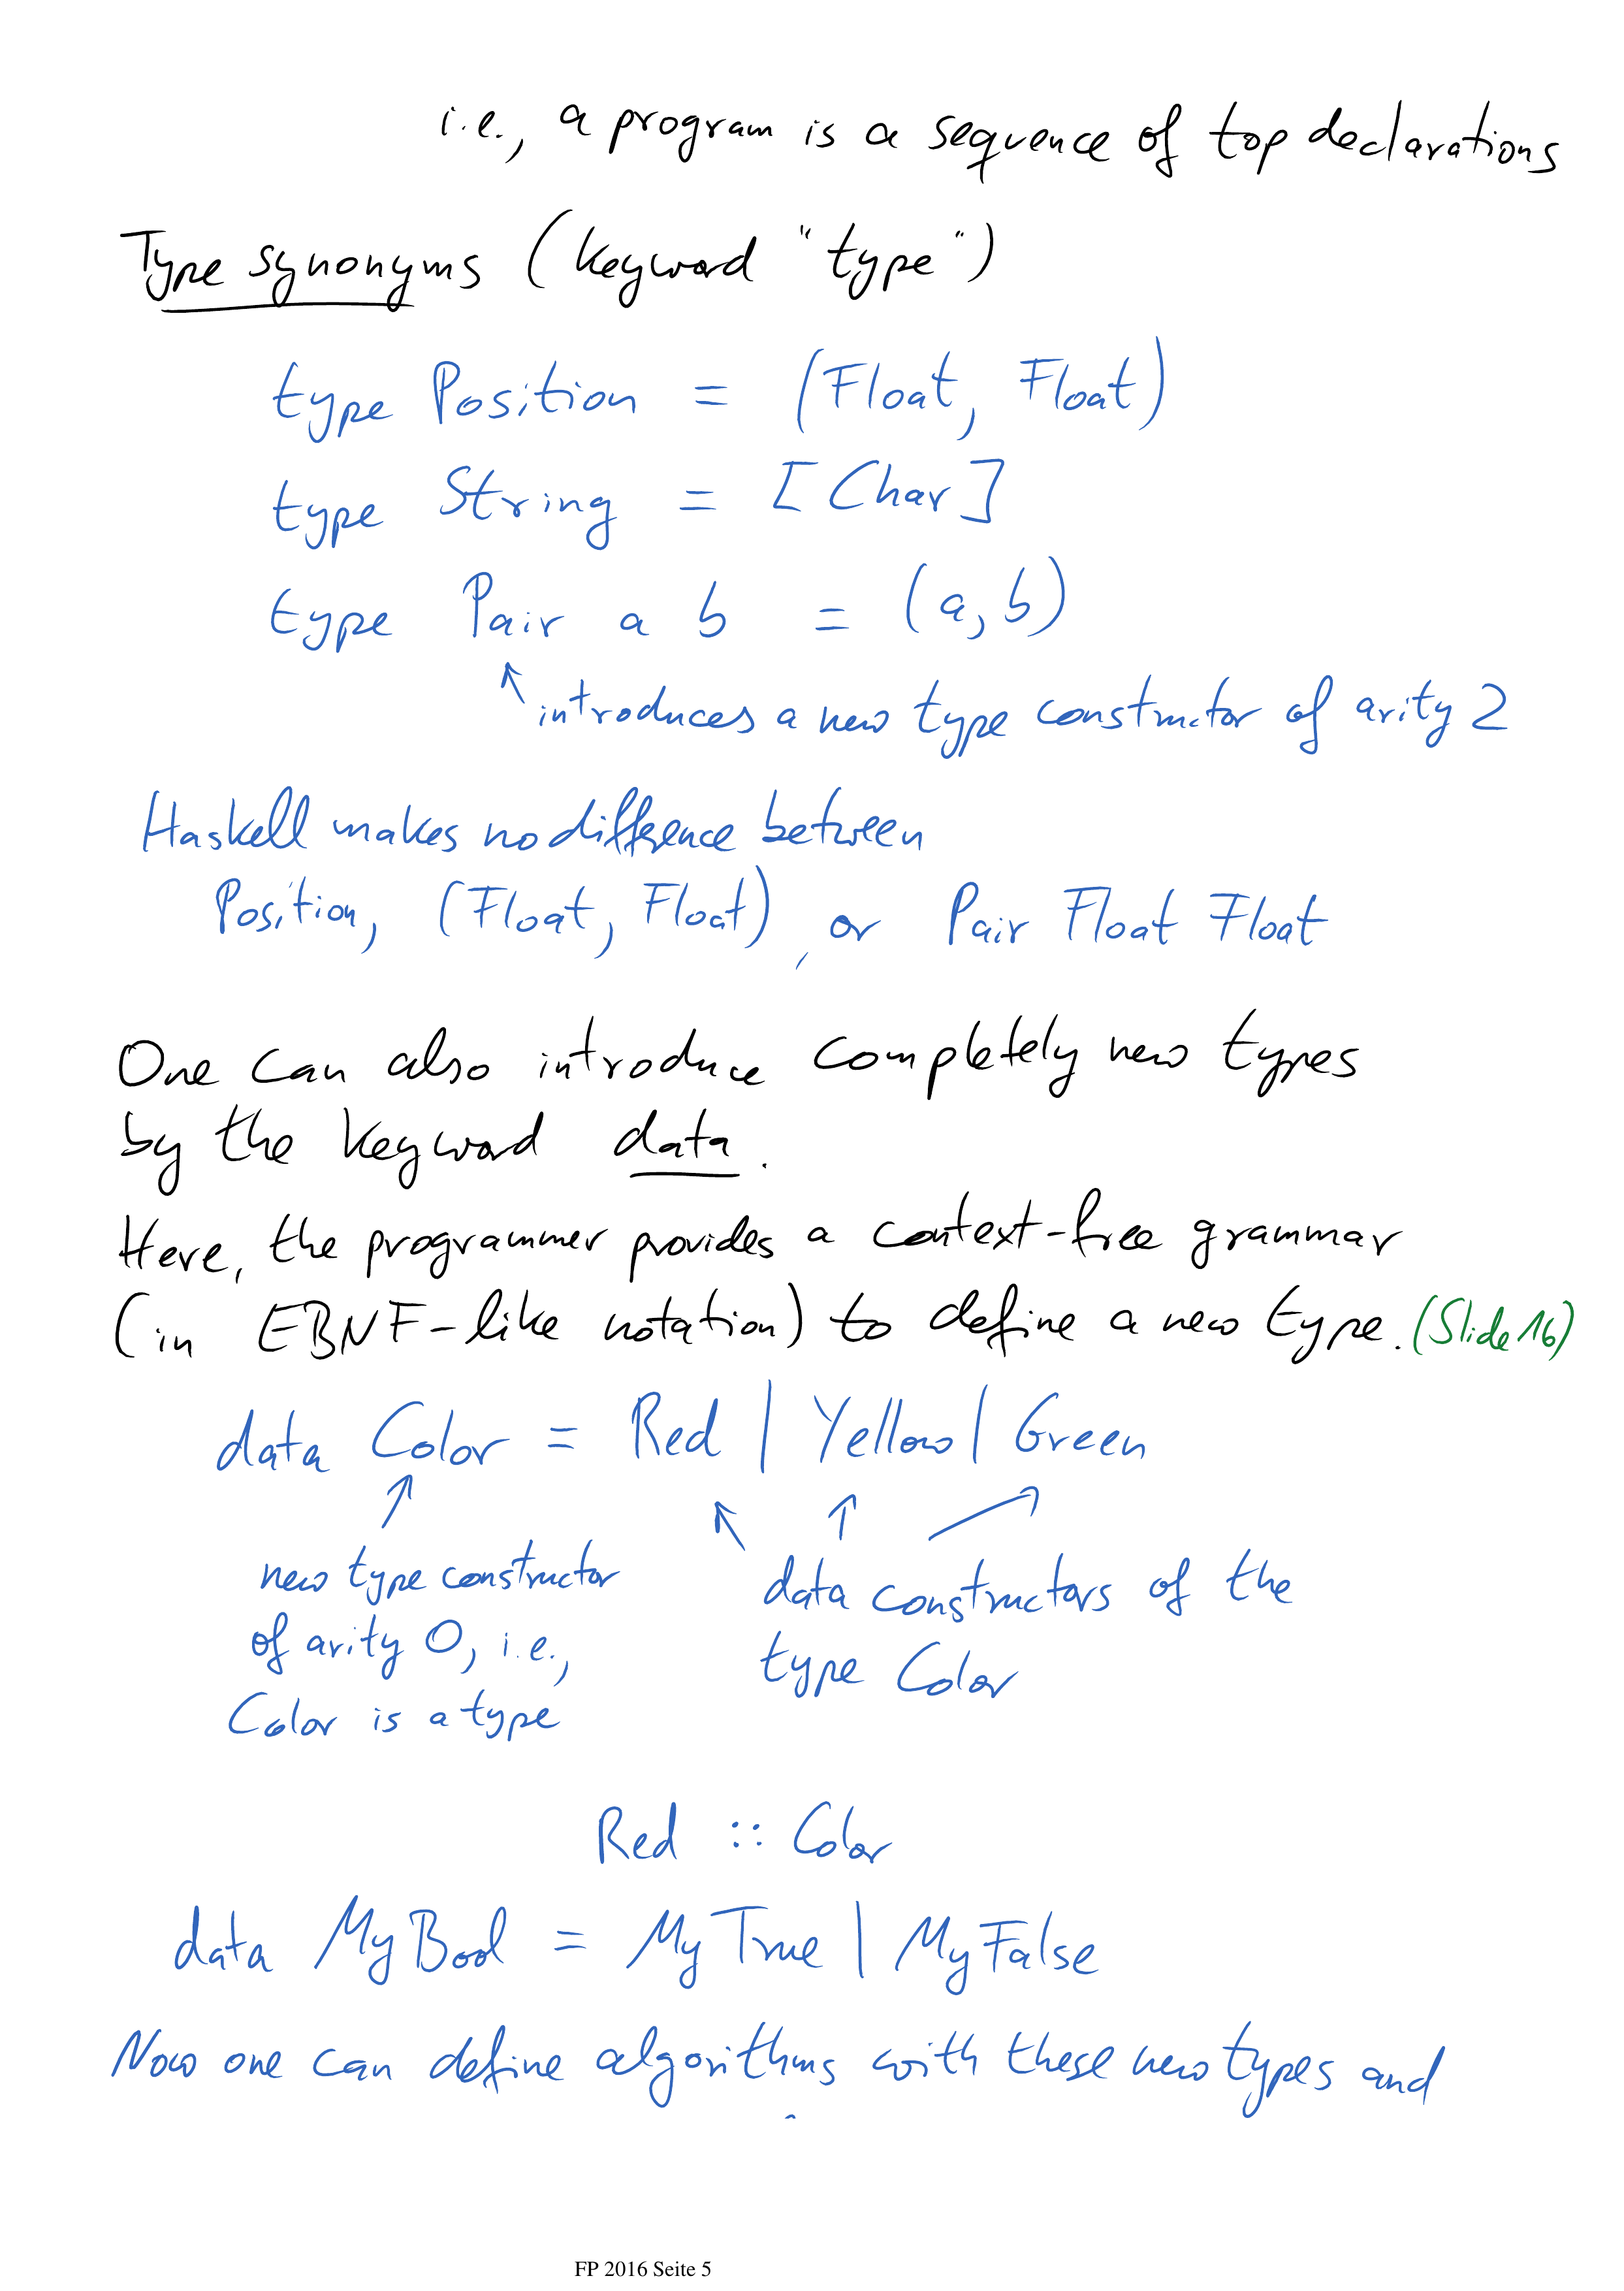 i.e., a program is a sequence of top declarations
Type synonyms (keyword "type")
type Position = (Float, Float)
type String = [Char]
type Pair a b = (a, b)
introduces a new type constructor of arity 2
Haskell makes no difference between
Position, (Float, Float), or Pair Float Float
One can also introduce completely new types
by the keyword data.
Here, the programmer provides a context-free grammar
(in EBNF-like notation) to define a new type. (Slide 16)
data Color = Red | Yellow | Green
new type constructor
of arity 0, i.e.,
Color is a type
data constructors of the
type Color
Red :: Color
data MyBool = MyTrue | MyFalse
Now one can define algorithms with these new types and
FP 2016 Seite 5